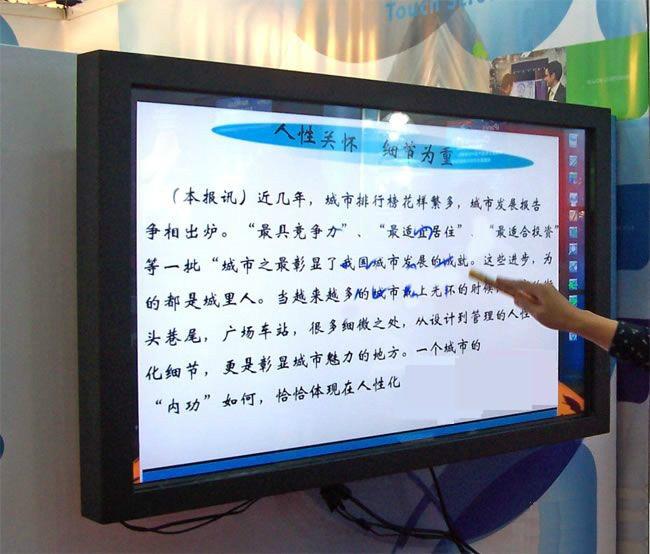 Touch Scre
人性关怀 细节为重
（本报讯）近几年，城市排行榜花样繁多，城市发展报告
争相出炉。“最具竞争力”、“最适宜居住”、“最适合投资”
等一批“城市之最彰显了我国城市发展的成就。这些进步，为
的都是城里人。当越来越多的城市 上光怀的时候
头巷尾，广场车站，很多细微之处，从设计到管理的人性
化细节，更是彰显城市魅力的地方。一个城市的
“内功”如何，恰恰体现在人性化